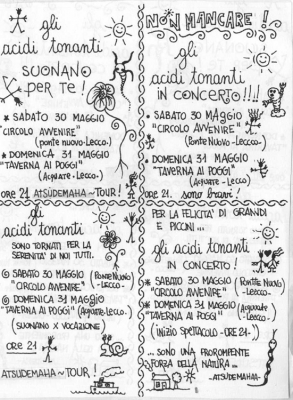 gli
acidi tonanti
SUONANO
PER TE!
* SABATO 30 MAGGIO
"CIRCOLO AVVENIRE"
(PONTE NUOVO-LECCO-)
* DOMENICA 31 MAGGIO
"TAVERNA AI POGGI"
(Acquate-Lecco-)
ORE 21 ATSUDEMAHA~TOUR!
NON MANCARE!
gli
acidi tonanti
IN CONCERTO!!!!
• SABATO 30 MAGGIO
"CIRCOLO AVVENIRE"
(Ponte Nuovo-Lecco-)
• DOMENICA 31 MAGGIO
"TAVERNA AI POGGI"
(Acquate-Lecco-)
ORE 21. sono bravi!
gli
acidi tonanti
SONO TORNATI PER LA
SERENITA' DI NOI TUTTI.
SABATO 30 MAGGIO (Ponte Nuovo
"CIRCOLO AVVENIRE" -Lecco-)
DOMENICA 31 MAGGIO
"TAVERNA AI POGGI" (Acquate-Lecco-)
(SUONANO X VOCAZIONE)
ORE 21
ATSUDEMAHA ~TOUR!
PER LA FELICITA' DI GRANDI
E PICCINI ...
gli acidi tonanti
IN CONCERTO!
* SABATO 30 MAGGIO (PONTE NUOVO
"CIRCOLO AVVENIRE" -LECCO-)
* DOMENICA 31 MAGGIO (Acquate
"TAVERNA AI POGGI" -Lecco-)
(INIZIO SPETTACOLO -ORE 21-)
... SONO UNA PROROMPENTE
FORZA DELLA NATURA...
-ATSUDEMAHA-